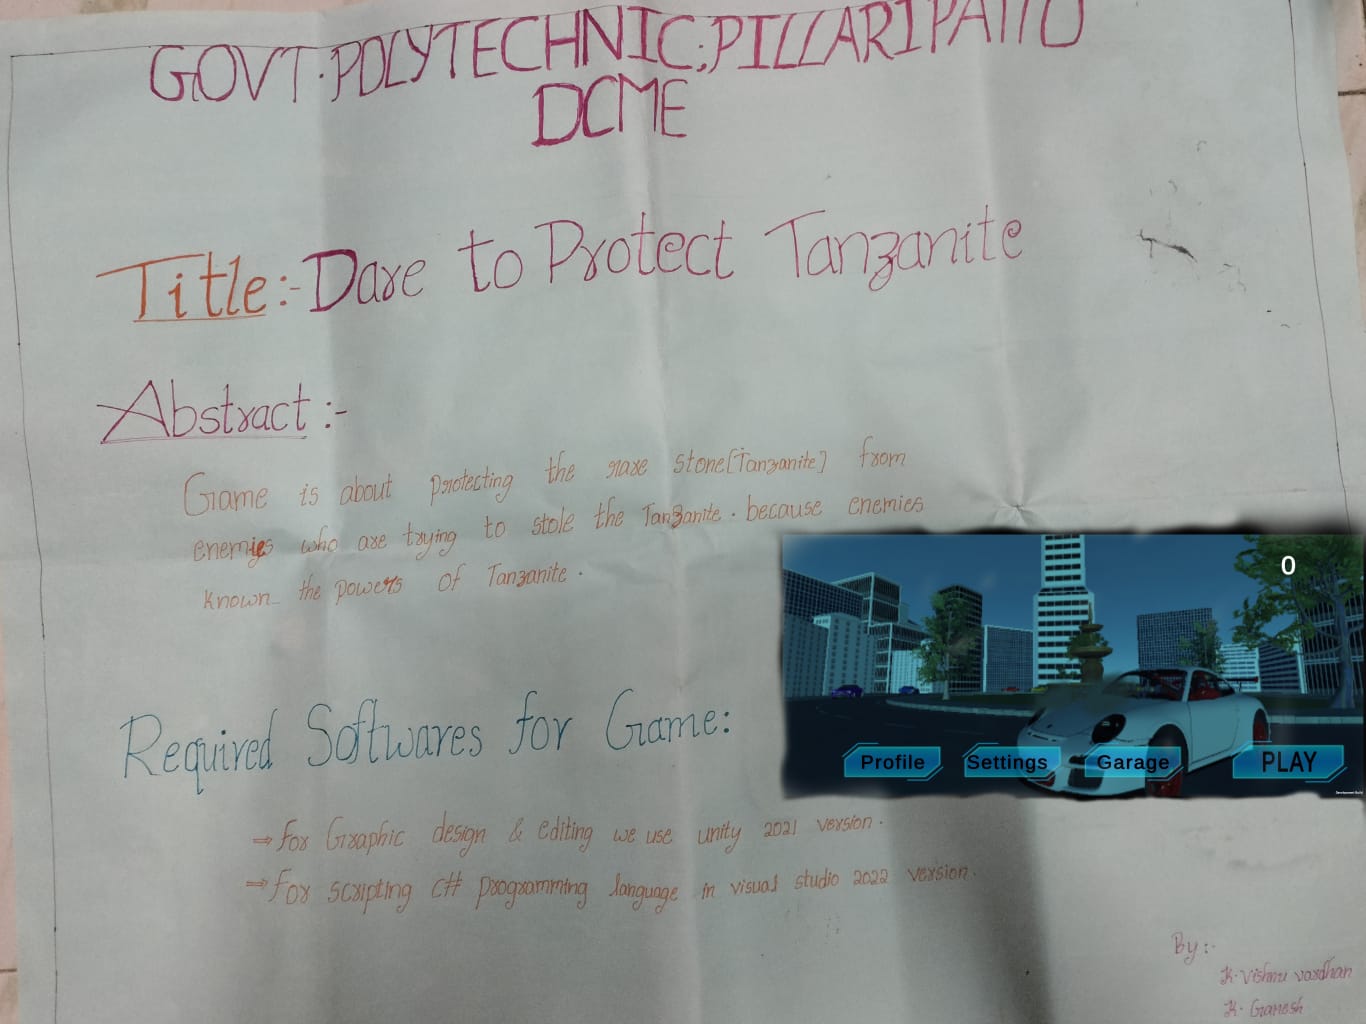 GOVT.POLYTECHNIC;PILLARIPATTU
DCME
Title:- Dare to Protect Tanzanite
Abstract:-
Game is about protecting the rare stone[Tanzanite] from
enemies who are trying to stole the Tanzanite. because enemies
known the powers of Tanzanite.
0
Required Softwares for Game:
Profile Settings Garage PLAY
Development Build
⇒ for Graphic design & editing we use unity 2021 version.
⇒ For scripting C# programming language in visual studio 2022 version.
By:-
K. Vishnu vardhan
K. Ganesh